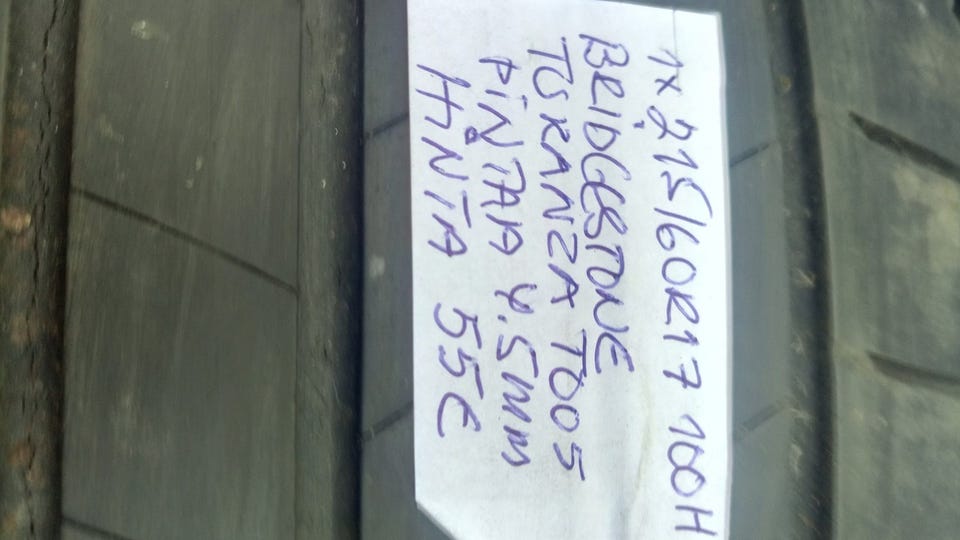 1x 215/60R17 100H
BRIDGESTONE
TURANZA T005
PINTAA 4.5mm
HINTA 55€